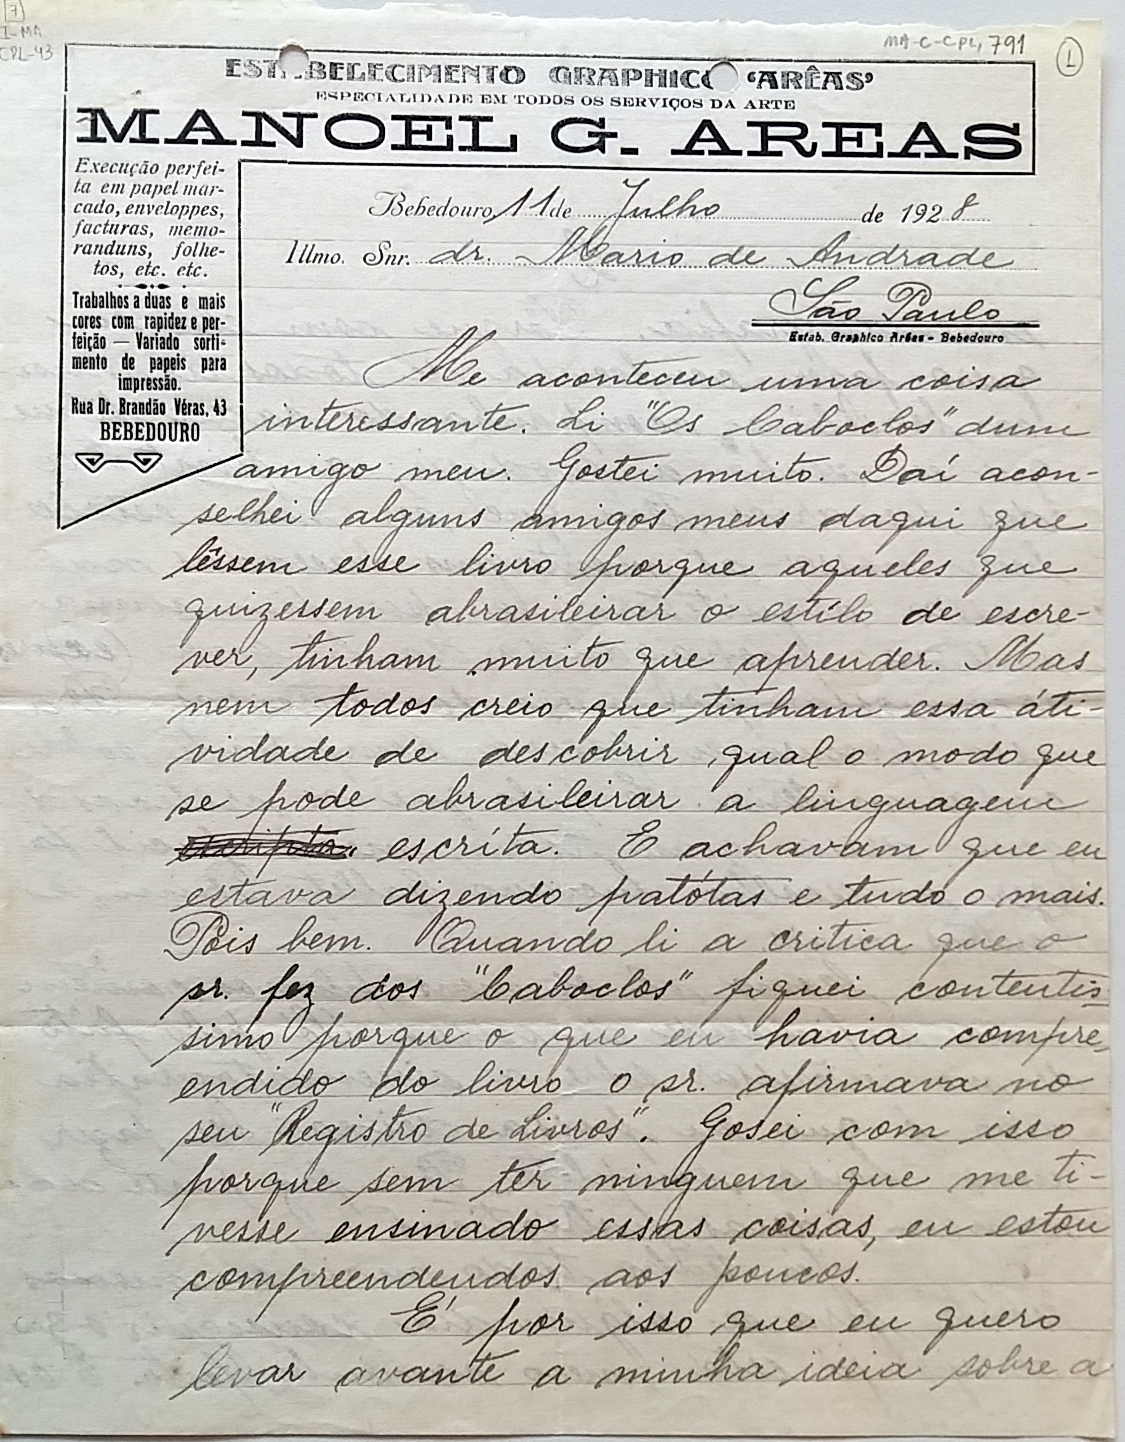 [7]
I-MA
CPL-43
MA-C-CPL, 791
1
ESTABELECIMENTO GRAPHICO 'ARÊAS'
ESPECIALIDADE EM TODOS OS SERVIÇOS DA ARTE
MANOEL G. AREAS
Execução perfei-
ta em papel mar-
cado, enveloppes,
facturas, memo-
randuns, folhe-
tos, etc. etc.
Trabalhos a duas e mais
cores com rapidez e per-
feição — Variado sorti-
mento de papeis para
impressão.
Rua Dr. Brandão Véras, 43
BEBEDOURO
Bebedouro, 11 de Julho de 1928
Illmo. Snr. dr. Mario de Andrade
São Paulo
Estab. Graphico Arêas - Bebedouro
Me aconteceu uma coisa
interessante. Li "Os Caboclos" dum
amigo meu. Gostei muito. Daí acon-
selhei alguns amigos meus daqui que
lêssem esse livro porque aqueles que
quizessem abrasileirar o estílo de escre-
ver, tinham muito que aprender. Mas
nem todos creio que tinham essa áti-
vidade de descobrir qual o modo que
se pode abrasileirar a linguagem
escripta. escríta. E achavam que eu
estava dizendo patótas e tudo o mais.
Pois bem. Quando li a critica que o
sr. fez dos "Caboclos" fiquei contentis-
simo porque o que eu havia compre-
endido do livro o sr. afirmava no
seu "Registro de Livros". Gosei com isso
porque sem ter ninguem que me ti-
vesse ensinado essas coisas, eu estou
compreendendos aos poucos.
É por isso que eu quero
levar avante a minha ideia sobre a